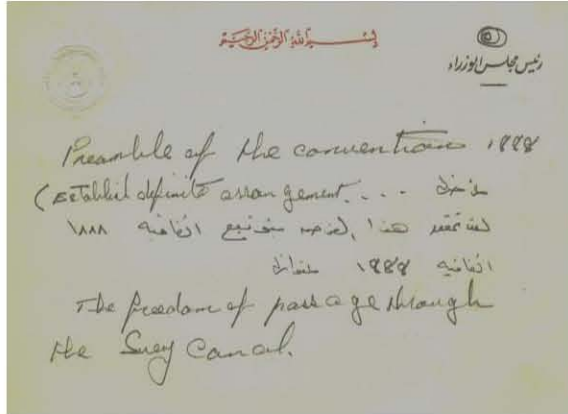 بسم الله الرحمن الرحيم
رئيس مجلس الوزراء
Preamble of the convention 1888
(Establish definite arrangement....
هذا اتفاقيه ١٨٨٨
اتفاقيه ١٨٨٨
The freedom of passage through
the Suez Canal.